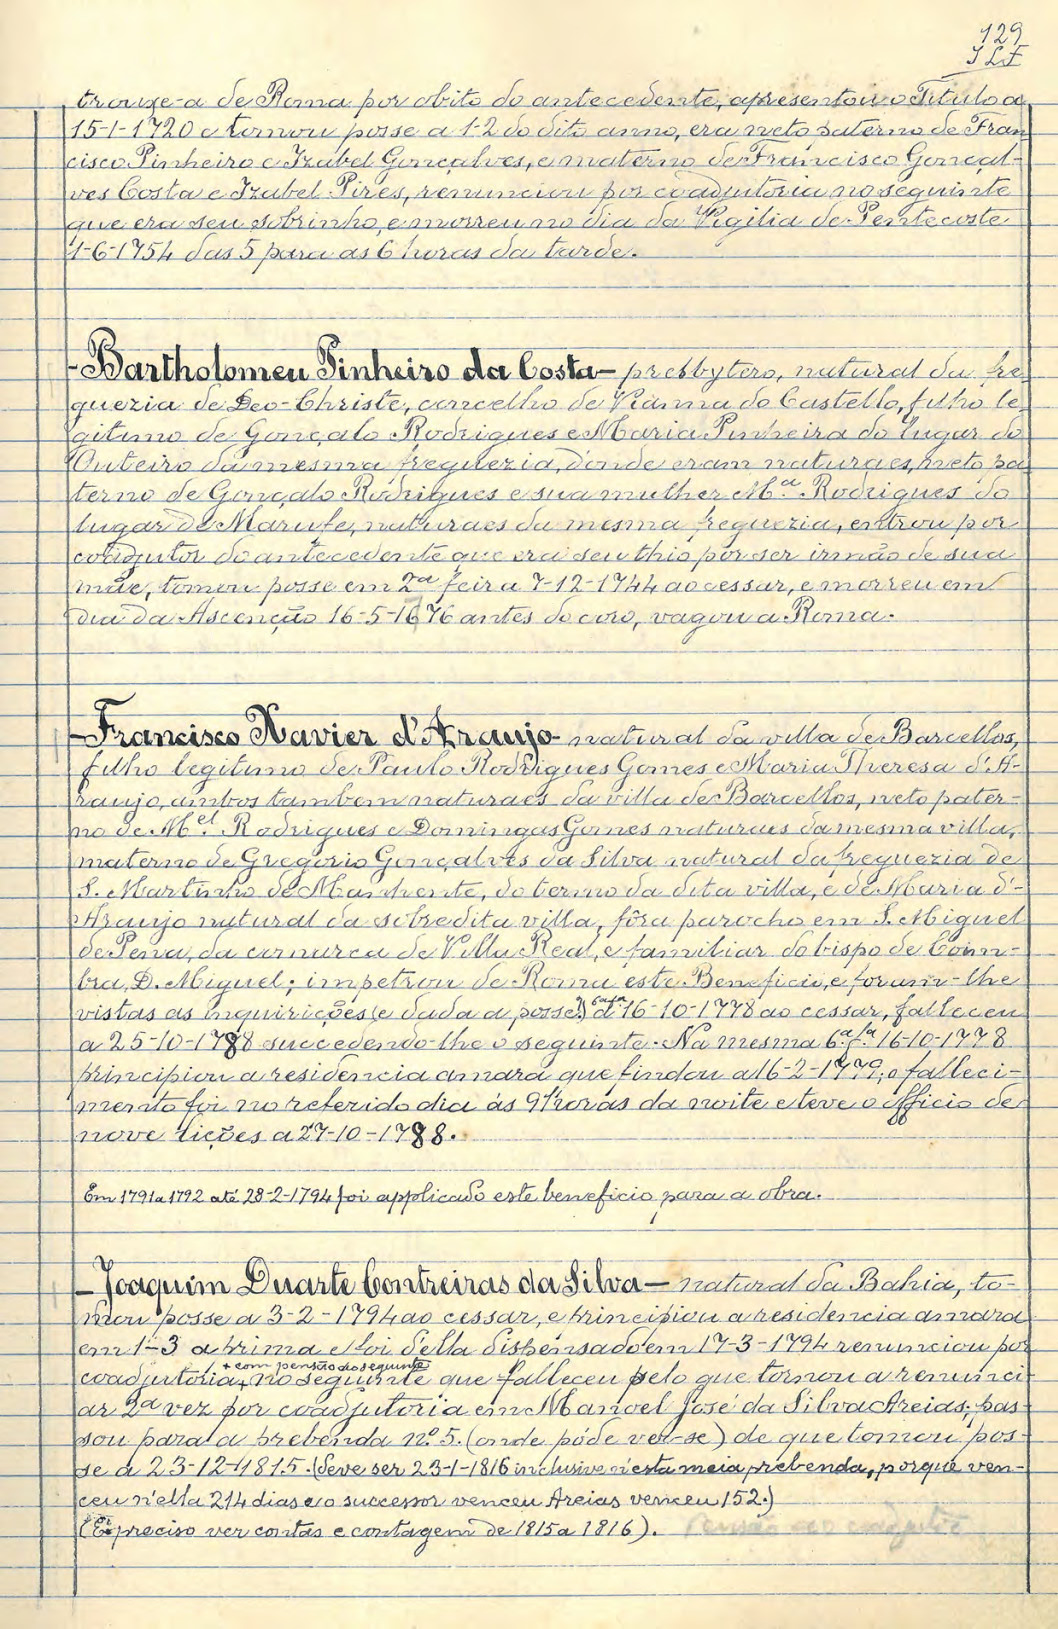 129
trouxe-a de Roma por obito do antecedente, apresentou o Titulo a
15-1-1720 e tomou posse a 1-2 do dito anno, era neto paterno de Fran
cisco Pinheiro e Izabel Gonçalves, e materno de Francisco Gonçal-
ves Costa e Izabel Pires, renunciou por coadjutoria no seguinte
que era seu sobrinho, e morreu no dia da Vigilia de Pentecoste
1-6-1754 das 5 para as 6 horas da tarde.
-Bartholomeu Pinheiro da Costa- presbytero, natural da fre
guezia de Deo-Christe, concelho de Vianna do Castello, filho le
gitimo de Gonçalo Rodrigues e Maria Pinheira do lugar do
Outeiro da mesma freguezia, donde eram naturaes, neto pa
terno de Gonçalo Rodrigues e sua mulher M.a Rodrigues do
lugar de Marufe, naturaes da mesma freguezia, entrou por
coadjutor do antecedente que era seu thio por ser irmão de sua
mãe, tomou posse em 2a feira 7-12-1744 ao cessar, e morreu em
dia da Ascenção 16-5-1676 antes do coro, vagou a Roma.
-Francisco Xavier d'Araujo- natural da villa de Barcellos,
filho legitimo de Paulo Rodrigues Gomes e Maria Theresa d'A-
raujo, ambos tambem naturaes da villa de Barcellos, neto pater-
no de M.el Rodrigues e Domingas Gomes naturaes da mesma villa,
materno de Gregorio Gonçalves da Silva natural da freguezia de
S. Martinho de Manhente, do termo da dita villa, e de Maria d'-
Araujo natural da sobredita villa, fôra parocho em S. Miguel
de Pena, da comarca de Villa Real, e familiar do bispo de Coim-
bra, D. Miguel; impetrou de Roma este Beneficio, e foram-lhe
vistas as inquirições (e dada a posse?) a 6a fa 16-10-1778 ao cessar, falleceu
a 25-10-1788 succedendo-lhe o seguinte. Na mesma 6.a f.a 16-10-1778
principiou a residencia amara que findou a 16-2-1779; o falleci-
mento foi no referido dia ás 9 horas da noite e teve o officio de
nove lições a 27-10-1788.
Em 1791 a 1792 até 28-2-1794 foi applicado este beneficio para a obra.
-Joaquim Duarte Contreiras da Silva- natural da Bahia, to-
mou posse a 3-2-1794 ao cessar, e principiou a residencia amara
em 1-3 a prima e foi della dispensado em 17-3-1794 renunciou por
+ com pensão ao seguinte
coadjutoria + no seguinte que falleceu pelo que tornou a renunci
ar 2a vez por coadjutoria em Manoel José da Silva Areias, pas-
sou para a prebenda nº 5. (onde póde ver-se) de que tomou pos-
se a 23-12-1815. (deve ser 23-1-1816 inclusive n'esta meia prebenda, porque ven-
ceu n'ella 214 dias e o successor venceu Areias venceu 152.)
(É preciso ver contas e contagem de 1815 a 1816).